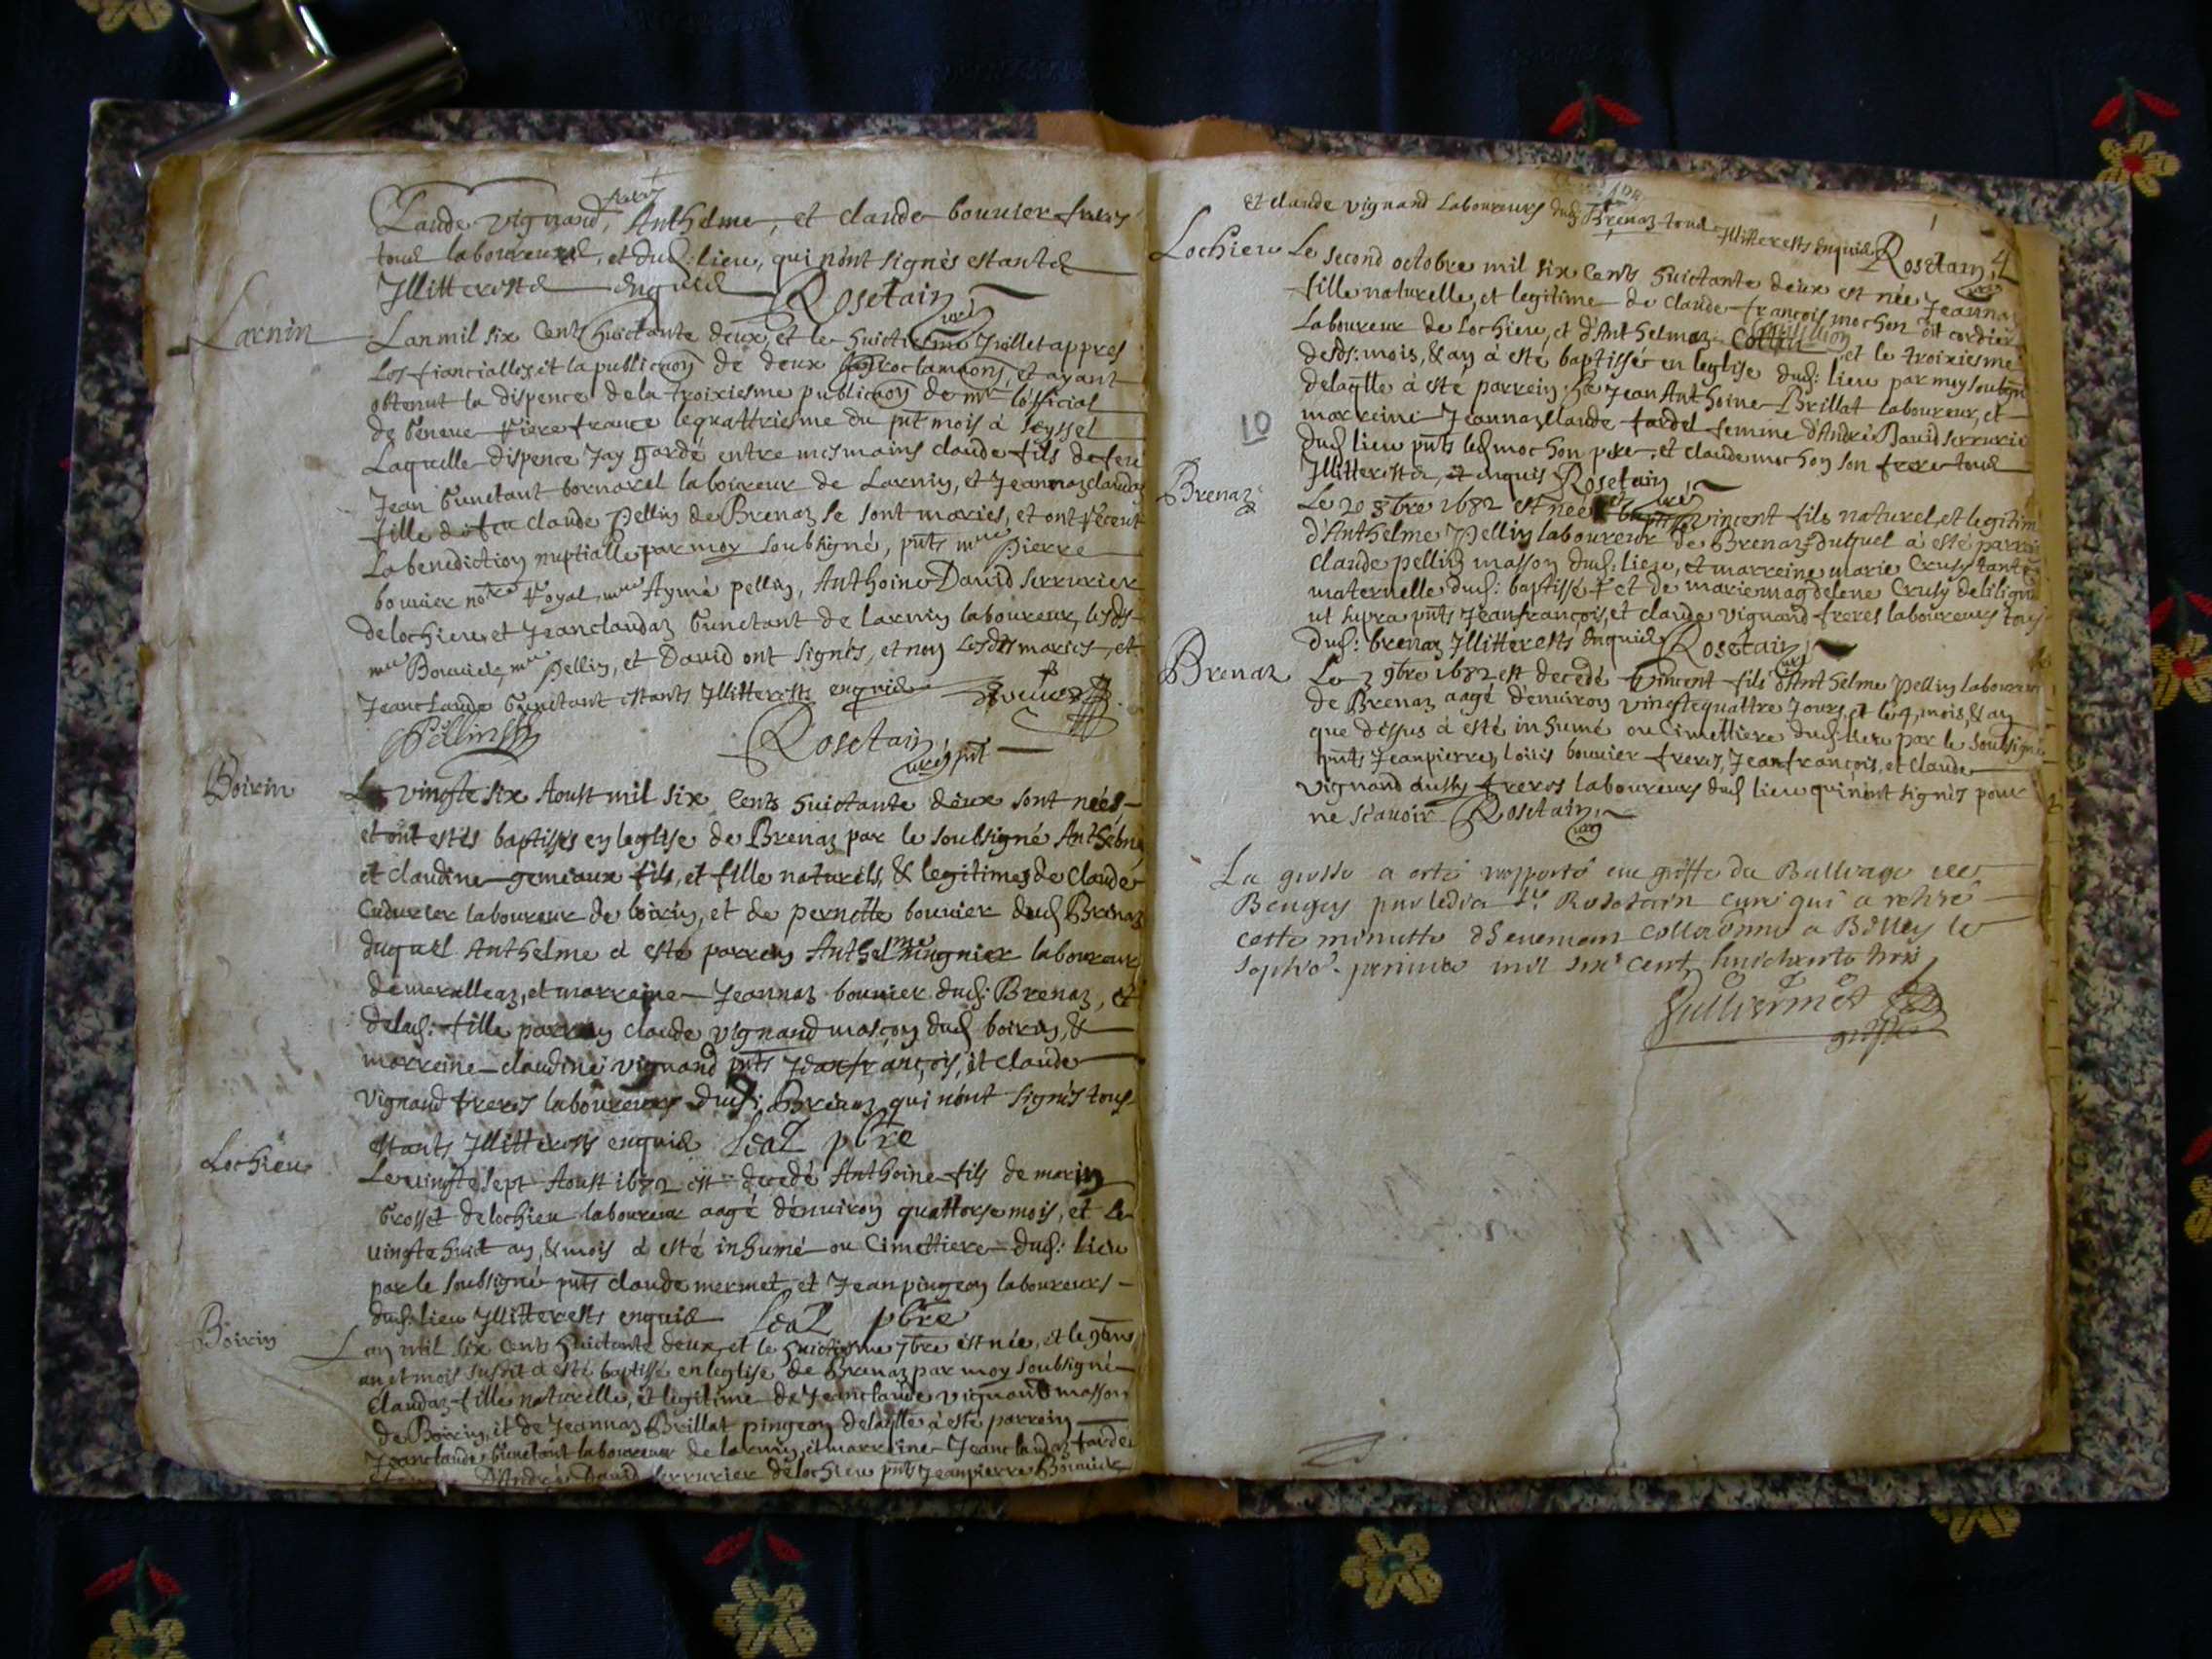 Claude vignand freres, Anthelme, et claude bouuier freres
tous laboureurs, et dud: lieu, qui nont signés estants
Illitterests enquis Rosetain curé
Larnin
Lan mil six Cents huictante deux, et le huictiesme Juillet appres
Les fiancialles, et la publicaon de deux proclamaons, et ayant
obtenut la dispence de la troixiesme publicaon de mr lofficial
de Geneue le quattriesme du pnt mois à seyssel
Laquelle dispence Jay gardé entre mes mains claude fils de feu
Jean bunetant bornarel laboureur de Larnin, et Jeannaz claudaz
fille de feu claude Pellin de Brenaz se sont mariés, et ont receut
La benediction nuptialle par moy soubsigné, pnts mre Pierre
bouuier nore Royal, mre Aymé pellin, Anthoine Dauid serrurier
de lochieu, et Jeanclaudaz bunetant de larnin laboureur, lesds
mre Bouuier, mre Pellin, et Dauid ont signés, et non Lesdts mariés, et
Jeanclaude bunetant estants Illitterests enquis
Pellin
Rosetain curé pnt
Boirin
Le vingte six Aoust mil six Cents huictante deux sont néés
et ont estés baptissés en leglise de Brenaz par le soubsigné Anthelme
et claudine gemeaux fils, et fille naturels, & legitimes de Claude
Cudurier laboureur de boirin, et de pernette bouuier dud Brenaz
duquel Anthelme à esté parrein Anthelme mugnier laboureur
demeralleaz, et marreine Jeannaz bouuier dud: Brenaz, et
delad: fille parrein claude vignand masson dud boirin, &
marreine claudine vignand pnts Jeanfrançois, et claude
vignand freres laboureurs dud: Brenaz qui nont signés tous
estants Illitterests enquis Leal pbre
Lochieu
Le vingte sept Aoust 1682 est decedé Anthoine fils de marin
brosset de lochieu laboureur aagé denuiron quattorse mois, et le
vingte huit an, & mois à esté inhumé ou Cimettiere dud: lieu
par le soubsigné pnts claude mermet, et Jean pingeon laboureurs
dud: lieu Illitterests enquis Leal pbre
Boirin
Lan mil six Cents huictante deux, et le huictiesme 7bre est née, et le
an et mois susdit à esté baptissé en leglise de Brenaz par moy soubsigné
claudaz fille naturelle, et legitime de Jeanclaude vignand masson
de Boirin, et de Jeannaz Brillat pingeon delaqlle à esté parrein
Jeanclaude bunetant laboureur de larnin, et marreine Jeanclaudaz fardel
femme D'André Dauid serrurier de lochieu pnts Jeanpierre Bouuier
et claude vignand Laboureurs dud: Brenaz tous Illitterests enquis Rosetain curé
4
Lochieu
Le second octobre mil six Cents huictante deux est née Jeannaz
fille naturelle, et legitime de claude françois mochon dit cordier
Laboureur de Lochieu, et d'Anthelmaz et le troixiesme
desds: mois, & an à esté baptissée en leglise dud: lieu par moy soubsigné
delaqlle à esté parrein Jean Anthoine Brillat laboureur, et
marreine Jeannaz claude fardel femme d'André Dauid serrurier
dud lieu pnts led mochon pere, et claude mochon son frere tous
Illitterests, enquis Rosetain curé
10
Brenaz
Le 20 8bre 1682 est née et baptissé vincent fils naturel, et legitime
d'Anthelme Pellin laboureur de Brenaz duquel à esté parrein
claude pellin masson dud: lieu, et marreine marie Crusy tante
maternelle dud: baptissé et de marie magdelene Crusy
ut supra pnts Jeanfrançois, et claude vignand freres laboureurs tous
dud: brenaz Illitterests enquis Rosetain curé
Brenaz
Le 3 9bre 1682 est decedé vincent fils d'Anthelme Pellin laboureur
de Brenaz aagé denuiron vingtequattre Jours, et le 4, mois, & an
que dessus à esté inhumé ou Cimettiere dud: lieu par le soubsigné
pnts Jeanpierre, loüis bouuier freres, Jeanfrançois, et claude
vignand aussy freres laboureurs dud lieu qui nont signés pour
ne scauoir Rosetain curé
La grosse a esté rapporté au greffe du Balliage de
Beugey par ledict Sr Rosetain curé qui a retiré
cette minutte Belley le
mil six cent huictante trois